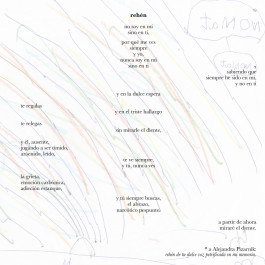 rehén
no soy en mí
sino en ti,
por qué me ves
siempre
y yo,
nunca soy en mí
sino en ti
JaMON
sabiendo que
siempre he sido en mí,
y no en ti
y en la dulce espera
te regalas
y en el triste hallazgo
te relegas
sin mirarle el diente,
y él, ausente,
jugando a ser tímido,
atacando, leído,
te ve siempre,
y tú, nunca ves
la grieta,
emoción carbónica,
adicción estanque,
y tú siempre buscas,
el abrazo,
narcótico pespunte
a partir de ahora
miraré el diente.
* a Alejandra Pizarnik:
rehén de tu dulce voz petrificada en mi memoria.